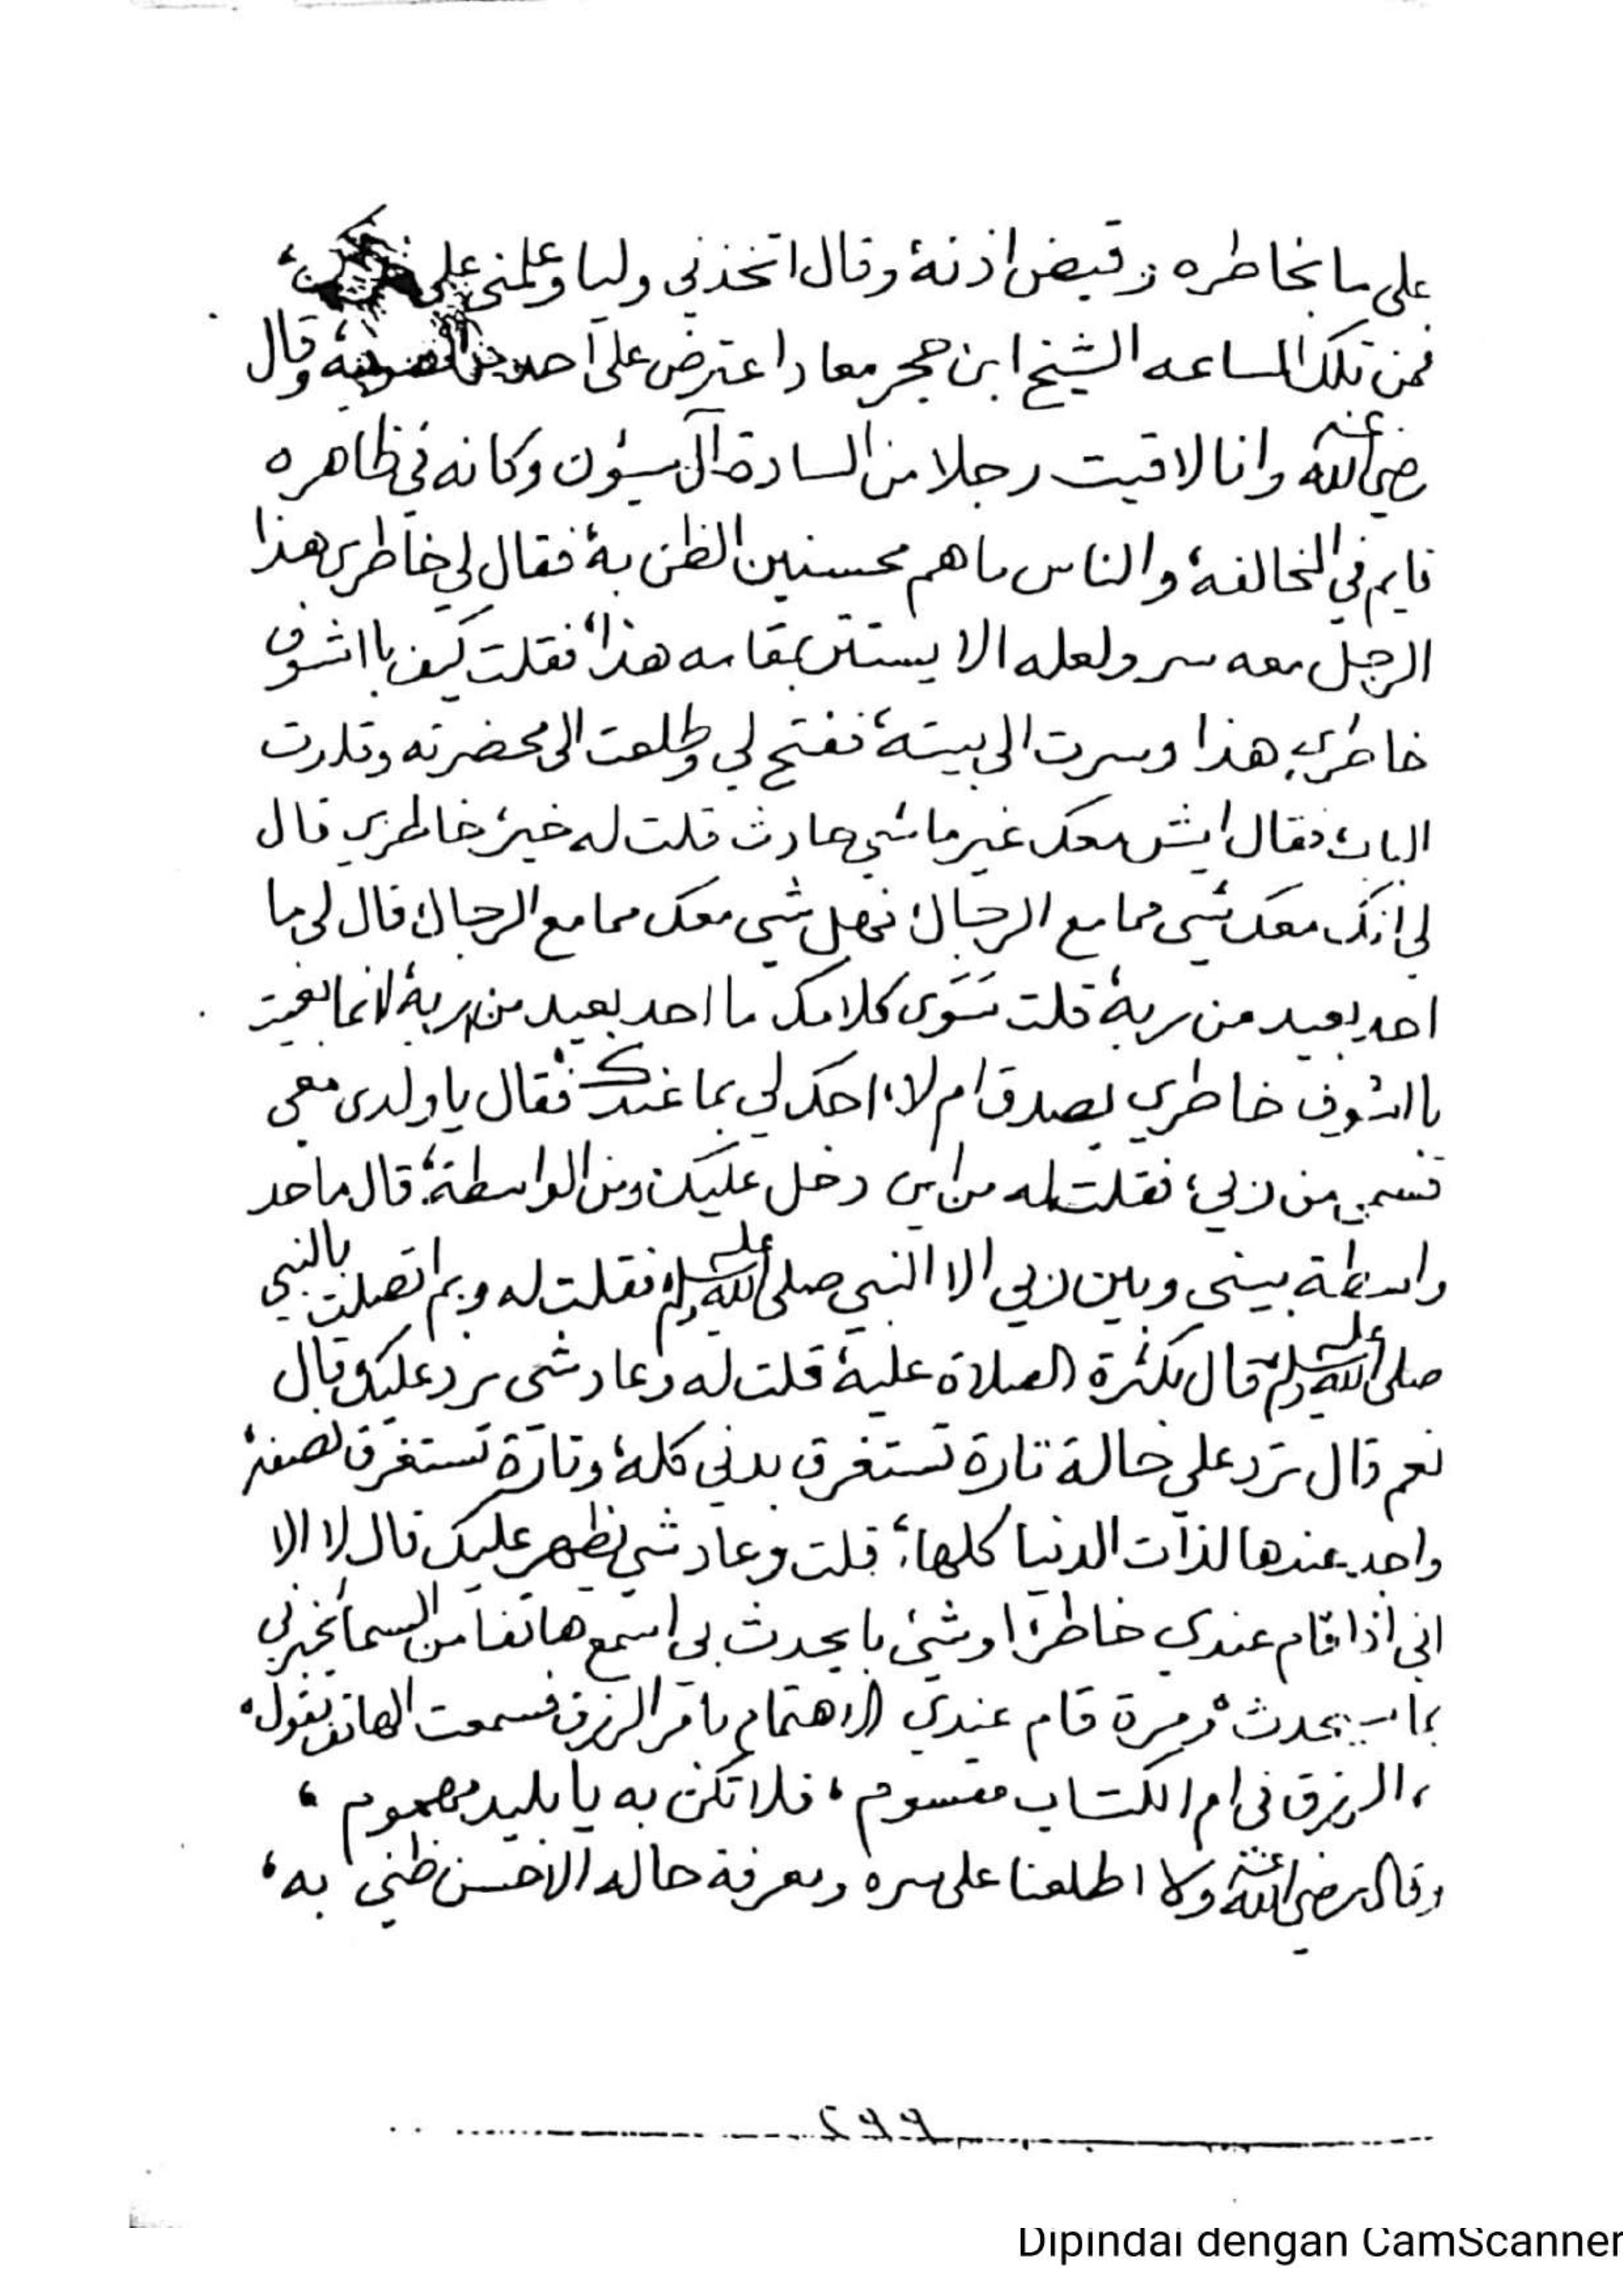 على ما بخاطره وقبض اذنهٔ وقال اتخذني وليا وعلمني على
فمن تلك الساعه الشيخ ابن حجر معاد اعترض على احد من الصوفية وقال
رضي الله عنه وانا لاقيت رجلا من السادة آل وكانه في ظاهره
قايم في المخالفهٔ والناس ما هم محسنين الظن بهٔ فقال لي خاطري هذا
الرجل معه سر ولعله الا يستتر بمقامه هذا، فقلت كيف بااشوف
خاطري هذا وسرت الى بيته، ففتح لي وطلعت الى محضرته وقدرت
الباب فقال ايش معك غير ماشي حادث قلت له خير، خاطري قال
لي انك معك شي ممامع الرجال، فهل شي معك ممامع الرجال، قال لي ما
احد بعيد من ربهٔ قلت سَوَى كلامك ما احد بعيد من ربهٔ انما بغيت
بااشوف خاطري يصدق ام لا، احك لي بما عندك فقال ياولدي معي
قسمي من ربي، فقلت له من اين دخل عليك ومن الواسطة، قال ماحد
واسطة بيني وبين ربي الا النبي صلى الله عليه وسلم فقلت له وبم اتصلت بالنبي
صلى الله عليه وسلم قال بكثرة الصلاة عليهٔ قلت له وعاد شي يرد عليك قال
نعم قال ترد علي حالة تارة تستغرق بدني كلهٔ وتارة تستغرق نصفهٔ
واجد عندها لذات الدنيا كلها، قلت وعاد شي يظهر عليك قال لا الا
اني اذا قام عندي خاطر، او شي، بايحدث لي اسمع هاتفا من السما يخبرني
بما يحدث ومرة قام عندي الاهتمام بامر الرزق فسمعت الهاتف يقول،
، الرزق في ام الكتاب مقسوم ، فلا تكن به يا بليد مهموم ،
وقال رضي الله عنه ولا اطلعنا على سره ومعرفة حاله الا حسن ظني به،
٢٩٩
Dipindai dengan CamScanner